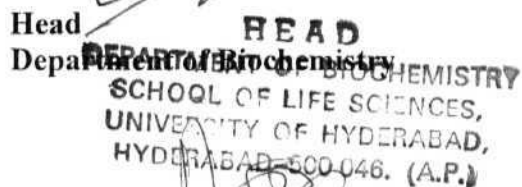 Head
HEAD
Department of Biochemistry
DEPARTMENT OF BIOCHEMISTRY
SCHOOL OF LIFE SCIENCES,
UNIVERSITY OF HYDERABAD,
HYDERABAD-500 046. (A.P.)